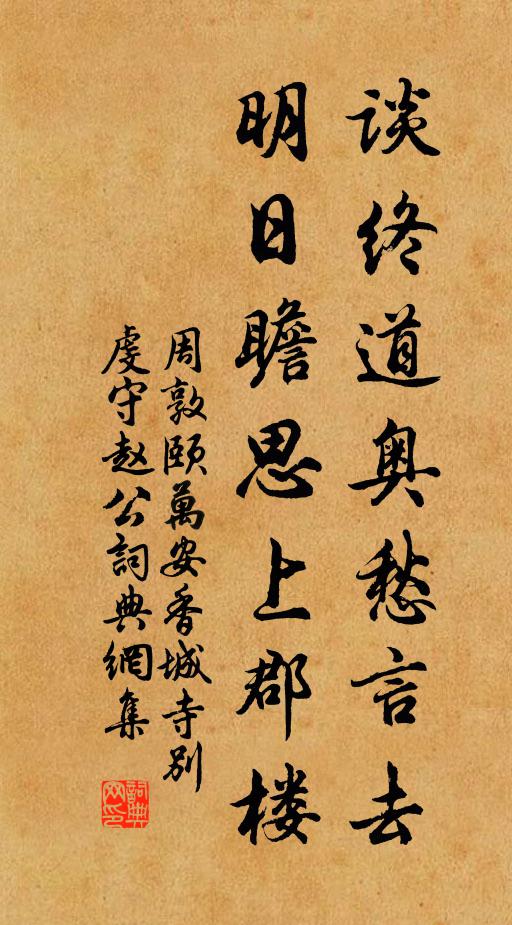 谈终道奥愁言去
明日瞻思上郡楼
周敦颐萬安香城寺别
虔守赵公詞典網集
詞典网印